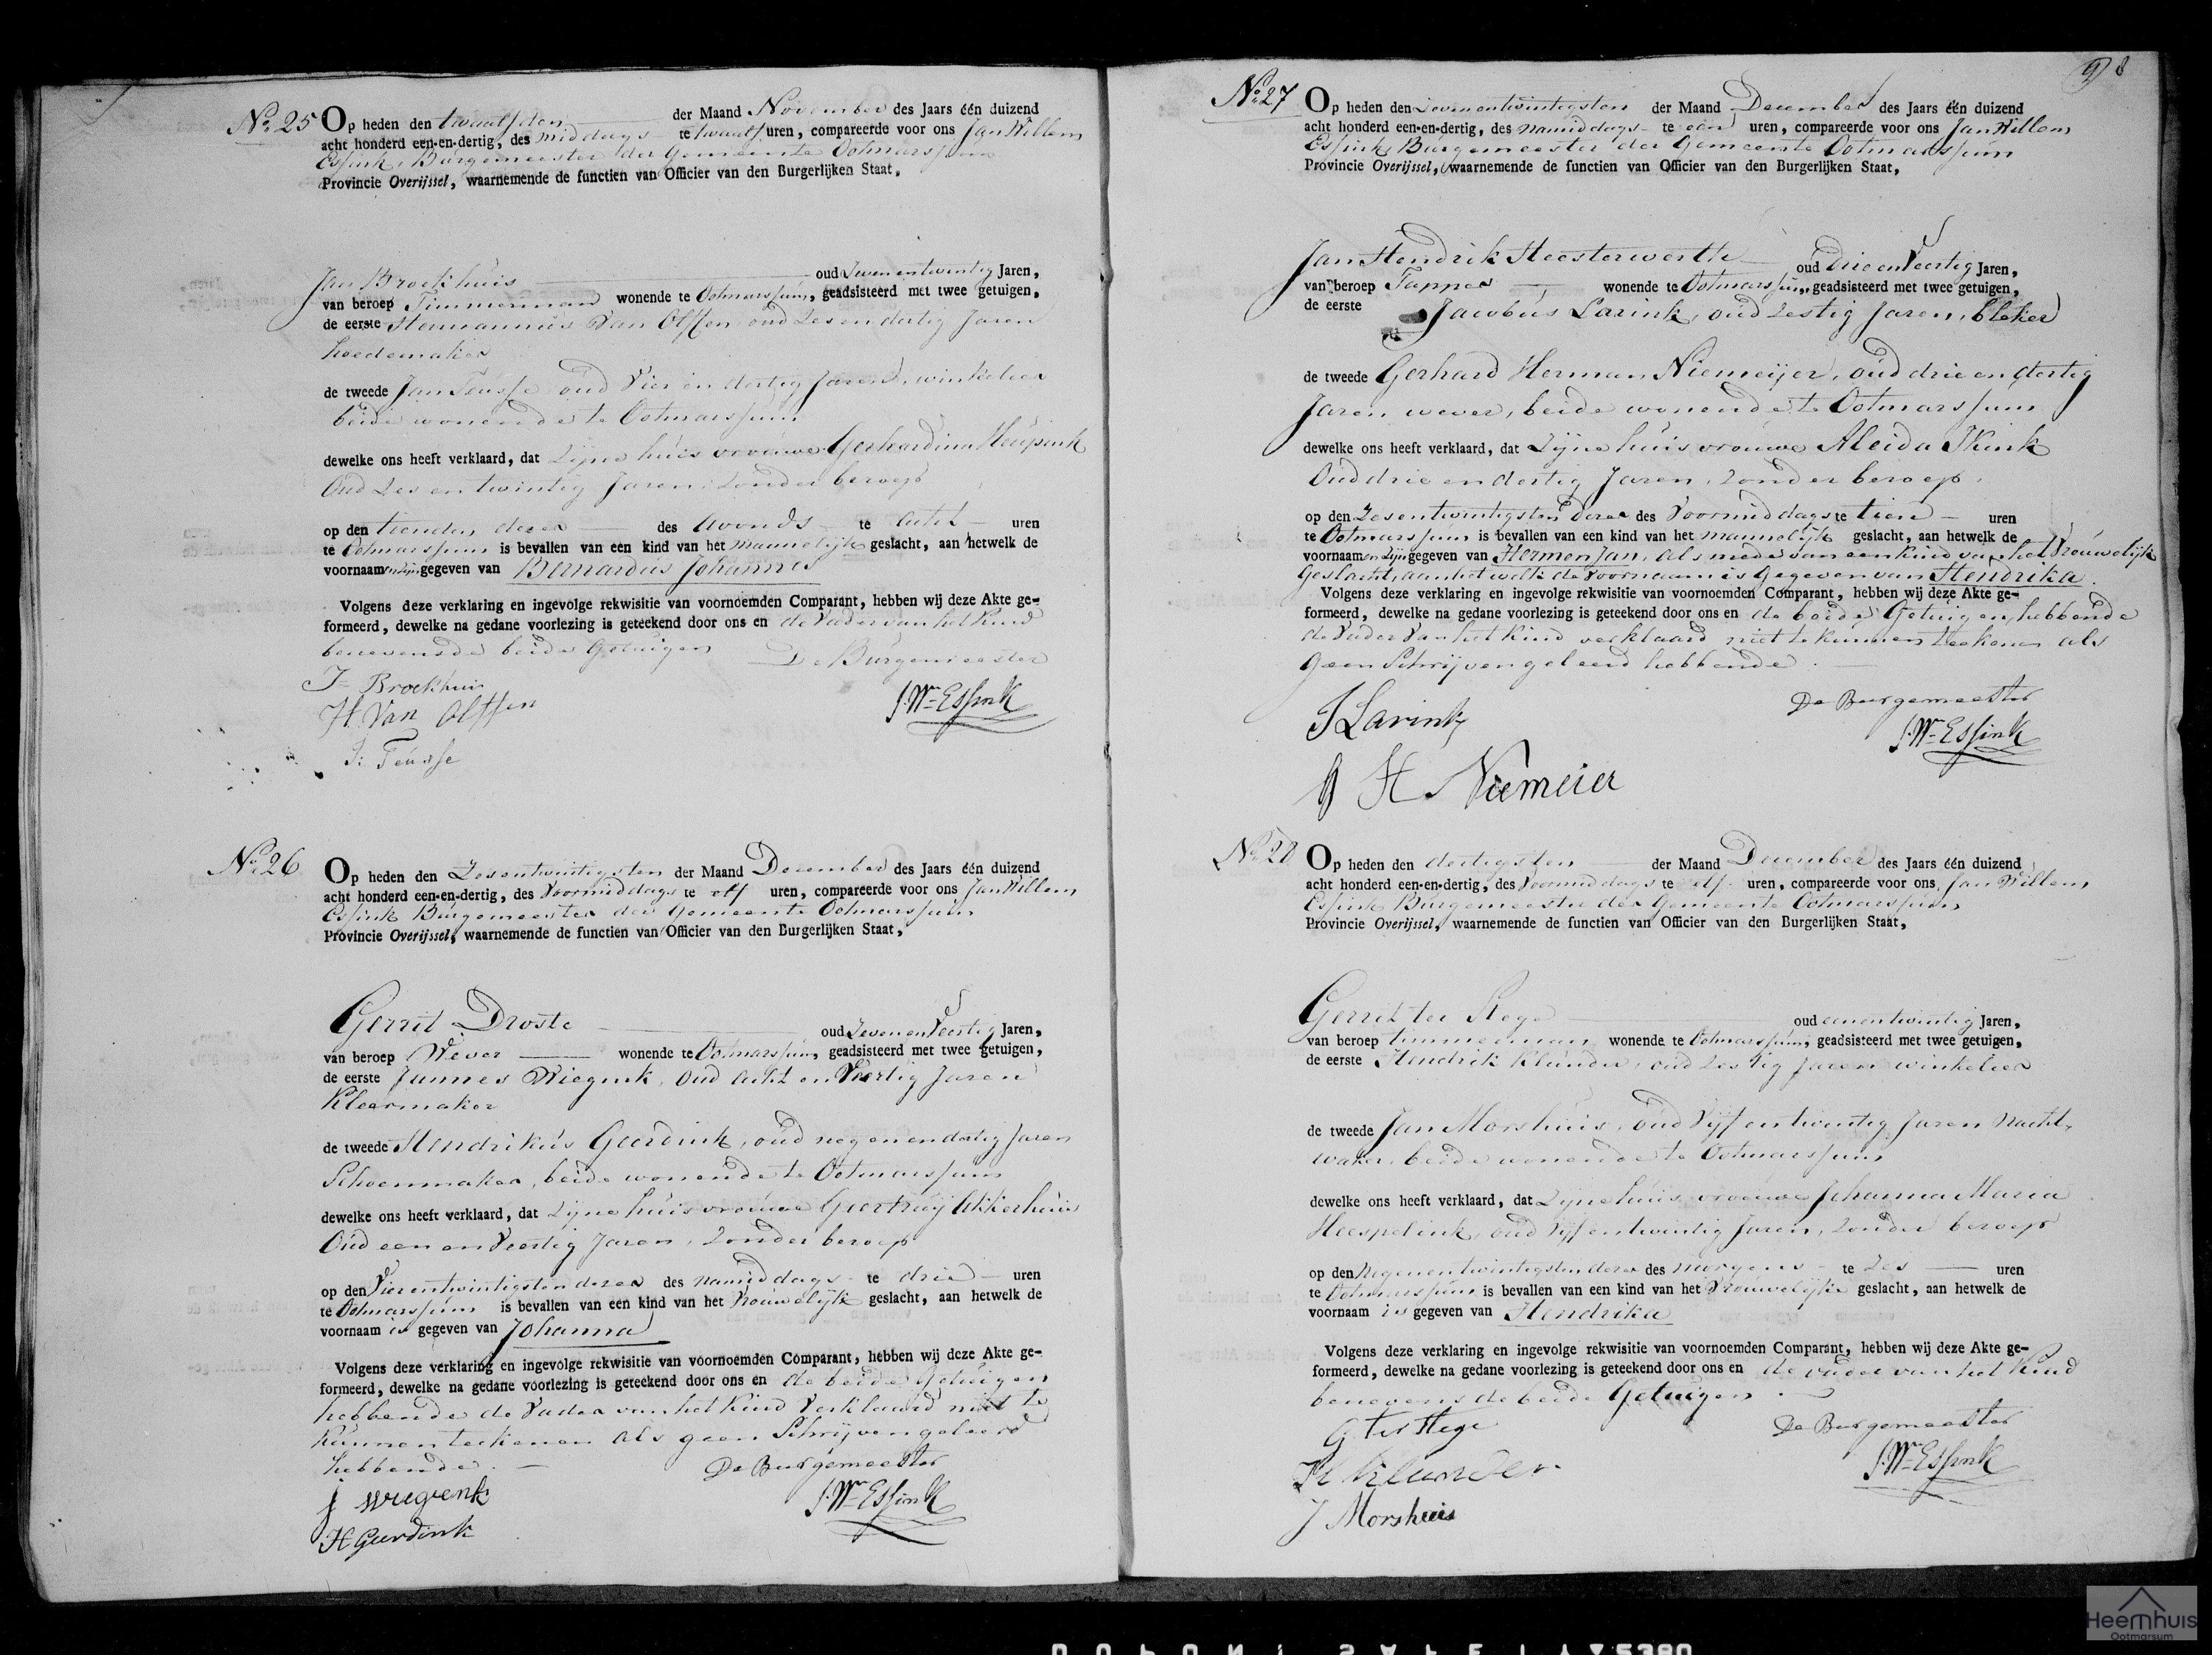 No. 25
Op heden den twaalfden der Maand November des Jaars één duizend
acht honderd een-en-dertig, des middags te twaalf uren, compareerde voor ons Jan Willem
Essink, Burgemeester der Gemeente Ootmarssum
Provincie Overijssel, waarnemende de functien van Officier van den Burgerlijken Staat,
Jan Broekhuis oud Zevenentwintig Jaren,
van beroep Timmerman wonende te Ootmarssum, geadsisteerd met twee getuigen,
de eerste Hermannus Van Olffen oud Zes en dertig Jaren
hoedemaker
de tweede Jan Teusse oud Vier en dertig Jaren, winkelier
beide wonende te Ootmarssum
dewelke ons heeft verklaard, dat Zijne huisvrouwe Gerhardina Heupink
Oud Zes en twintig Jaren, Zonder beroep
op den tienden dezer des Avonds te Acht uren
te Ootmarssum is bevallen van een kind van het mannelijk geslacht, aan hetwelk de
voornaamen zijn gegeven van Bernardus Johannes
Volgens deze verklaring en ingevolge rekwisitie van voornoemden Comparant, hebben wij deze Akte ge-
formeerd, dewelke na gedane voorlezing is geteekend door ons en de Vader van het Kind
benevens de beide Getuigen De Burgemeester
J= Broekhuis
H. Van Olffen J. Wm= Essink
J: Teusse
No. 26
Op heden den Zesentwintigsten der Maand December des Jaars één duizend
acht honderd een-en-dertig, des Voormiddags te elf uren, compareerde voor ons Jan Willem
Essink Burgemeester der Gemeente Ootmarssum
Provincie Overijssel, waarnemende de functien van Officier van den Burgerlijken Staat,
Gerrit Droste oud Zeven en Veertig Jaren,
van beroep Wever wonende te Ootmarssum, geadsisteerd met twee getuigen,
de eerste Jannes Wiegink, Oud Acht en Veertig Jaren
Kleermaker
de tweede Hendrikus Geerdink, oud negen en dertig Jaren
Schoenmaker, beide wonende te Ootmarssum
dewelke ons heeft verklaard, dat Zijne huisvrouwe Geertruij Akkerhuis
Oud een en Veertig Jaren, Zonder beroep
op den Vierentwintigsten dezer des namiddags te drie uren
te Ootmarssum is bevallen van een kind van het Vrouwelijk geslacht, aan hetwelk de
voornaam is gegeven van Johanna
Volgens deze verklaring en ingevolge rekwisitie van voornoemden Comparant, hebben wij deze Akte ge-
formeerd, dewelke na gedane voorlezing is geteekend door ons en de beide Getuigen
hebbende de Vader van het Kind Verklaard niet te
Kunnen teekenen als geen Schrijven geleerd
hebbende. De Burgemeester
J Wiegenk J. Wm= Essink
H Geerdink
98
No. 27
Op heden den Zevenentwintigsten der Maand December des Jaars één duizend
acht honderd een-en-dertig, des namiddags te een uren, compareerde voor ons Jan Willem
Essink Burgemeester der Gemeente Ootmarssum
Provincie Overijssel, waarnemende de functien van Officier van den Burgerlijken Staat,
Jan Hendrik Heesterwerth oud Drie en Veertig Jaren,
van beroep Tapper wonende te Ootmarssum, geadsisteerd met twee getuigen,
de eerste Jacobus Larink, oud Zestig Jaren, bleker
de tweede Gerhard Herman Niemeijer, oud drie en dertig
Jaren wever, beide wonende te Ootmarssum
dewelke ons heeft verklaard, dat Zijne huisvrouwe Aleida Ikink
Oud drie en dertig Jaren, Zonder beroep,
op den Zesentwintigsten dezer des Voormiddags te tien uren
te Ootmarssum is bevallen van een kind van het mannelijk geslacht, aan hetwelk de
voornaamen zijn gegeven van Hermen Jan, als mede van een Kind van het Vrouwelijk
Geslacht, aan het welk de Voornaam is Gegeven van Hendrika.
Volgens deze verklaring en ingevolge rekwisitie van voornoemden Comparant, hebben wij deze Akte ge-
formeerd, dewelke na gedane voorlezing is geteekend door ons en de beide Getuigen, hebbende
de Vader Van het Kind verklaard niet te kunnen teekenen als
geen Schrijven geleerd hebbende.
De Burgemeester
J Larink J. Wm= Essink
G H Niemeier
No. 28
Op heden den dertigsten der Maand December des Jaars één duizend
acht honderd een-en-dertig, des Voormiddags te elf uren, compareerde voor ons Jan Willem
Essink Burgemeester der Gemeente Ootmarssum
Provincie Overijssel, waarnemende de functien van Officier van den Burgerlijken Staat,
Gerrit ter Stege oud eenentwintig Jaren,
van beroep timmerman wonende te Ootmarssum, geadsisteerd met twee getuigen,
de eerste Hendrik Klunder, oud Zestig Jaren winkelier
de tweede Jan Morshuis, Oud Vijf en twintig Jaren Nacht-
waker, beide wonende te Ootmarssum
dewelke ons heeft verklaard, dat Zijne huisvrouwe Johanna Maria
Heespelink, oud Vijf en twintig Jaren, Zonder beroep
op den Negenentwintigsten dezer des morgens te Zes uren
te Ootmarssum is bevallen van een kind van het Vrouwelijke geslacht, aan hetwelk de
voornaam is gegeven van Hendrika
Volgens deze verklaring en ingevolge rekwisitie van voornoemden Comparant, hebben wij deze Akte ge-
formeerd, dewelke na gedane voorlezing is geteekend door ons en de vader van het Kind
benevens de beide Getuigen.
G ter Stege De Burgemeester
H Klunder J. Wm= Essink
J Morshuis
Heemhuis
Ootmarsum